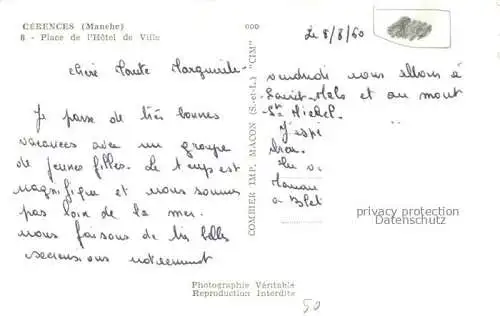 CÉRENCES (Manche)
8 - Place de l'Hôtel de Ville
Le 8/8/60
chère tante Marguerite
Je passe de très bonnes
vacances avec un groupe
de jeunes filles. Le temps est
magnifique et nous sommes
pas loin de la mer.
nous faisons de très belles
excursions notamment
COMBIER IMP. MACON (S.-et-L.) "CIM"
vendredi nous allons à
Saint-Malo et au mont
St Michel.
J'espè
Maman
privacy protection
Datenschutz
Photographie Véritable
Reproduction Interdite
50